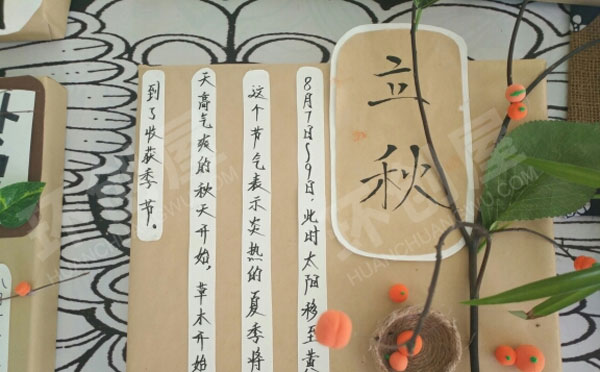 立秋
8月7日~9日,此时太阳移至黄
这个节气表示炎热的夏季将
天高气爽的秋天开始,草木开始
到了收获季节。
环创屋
HUANCHUANGWU.COM